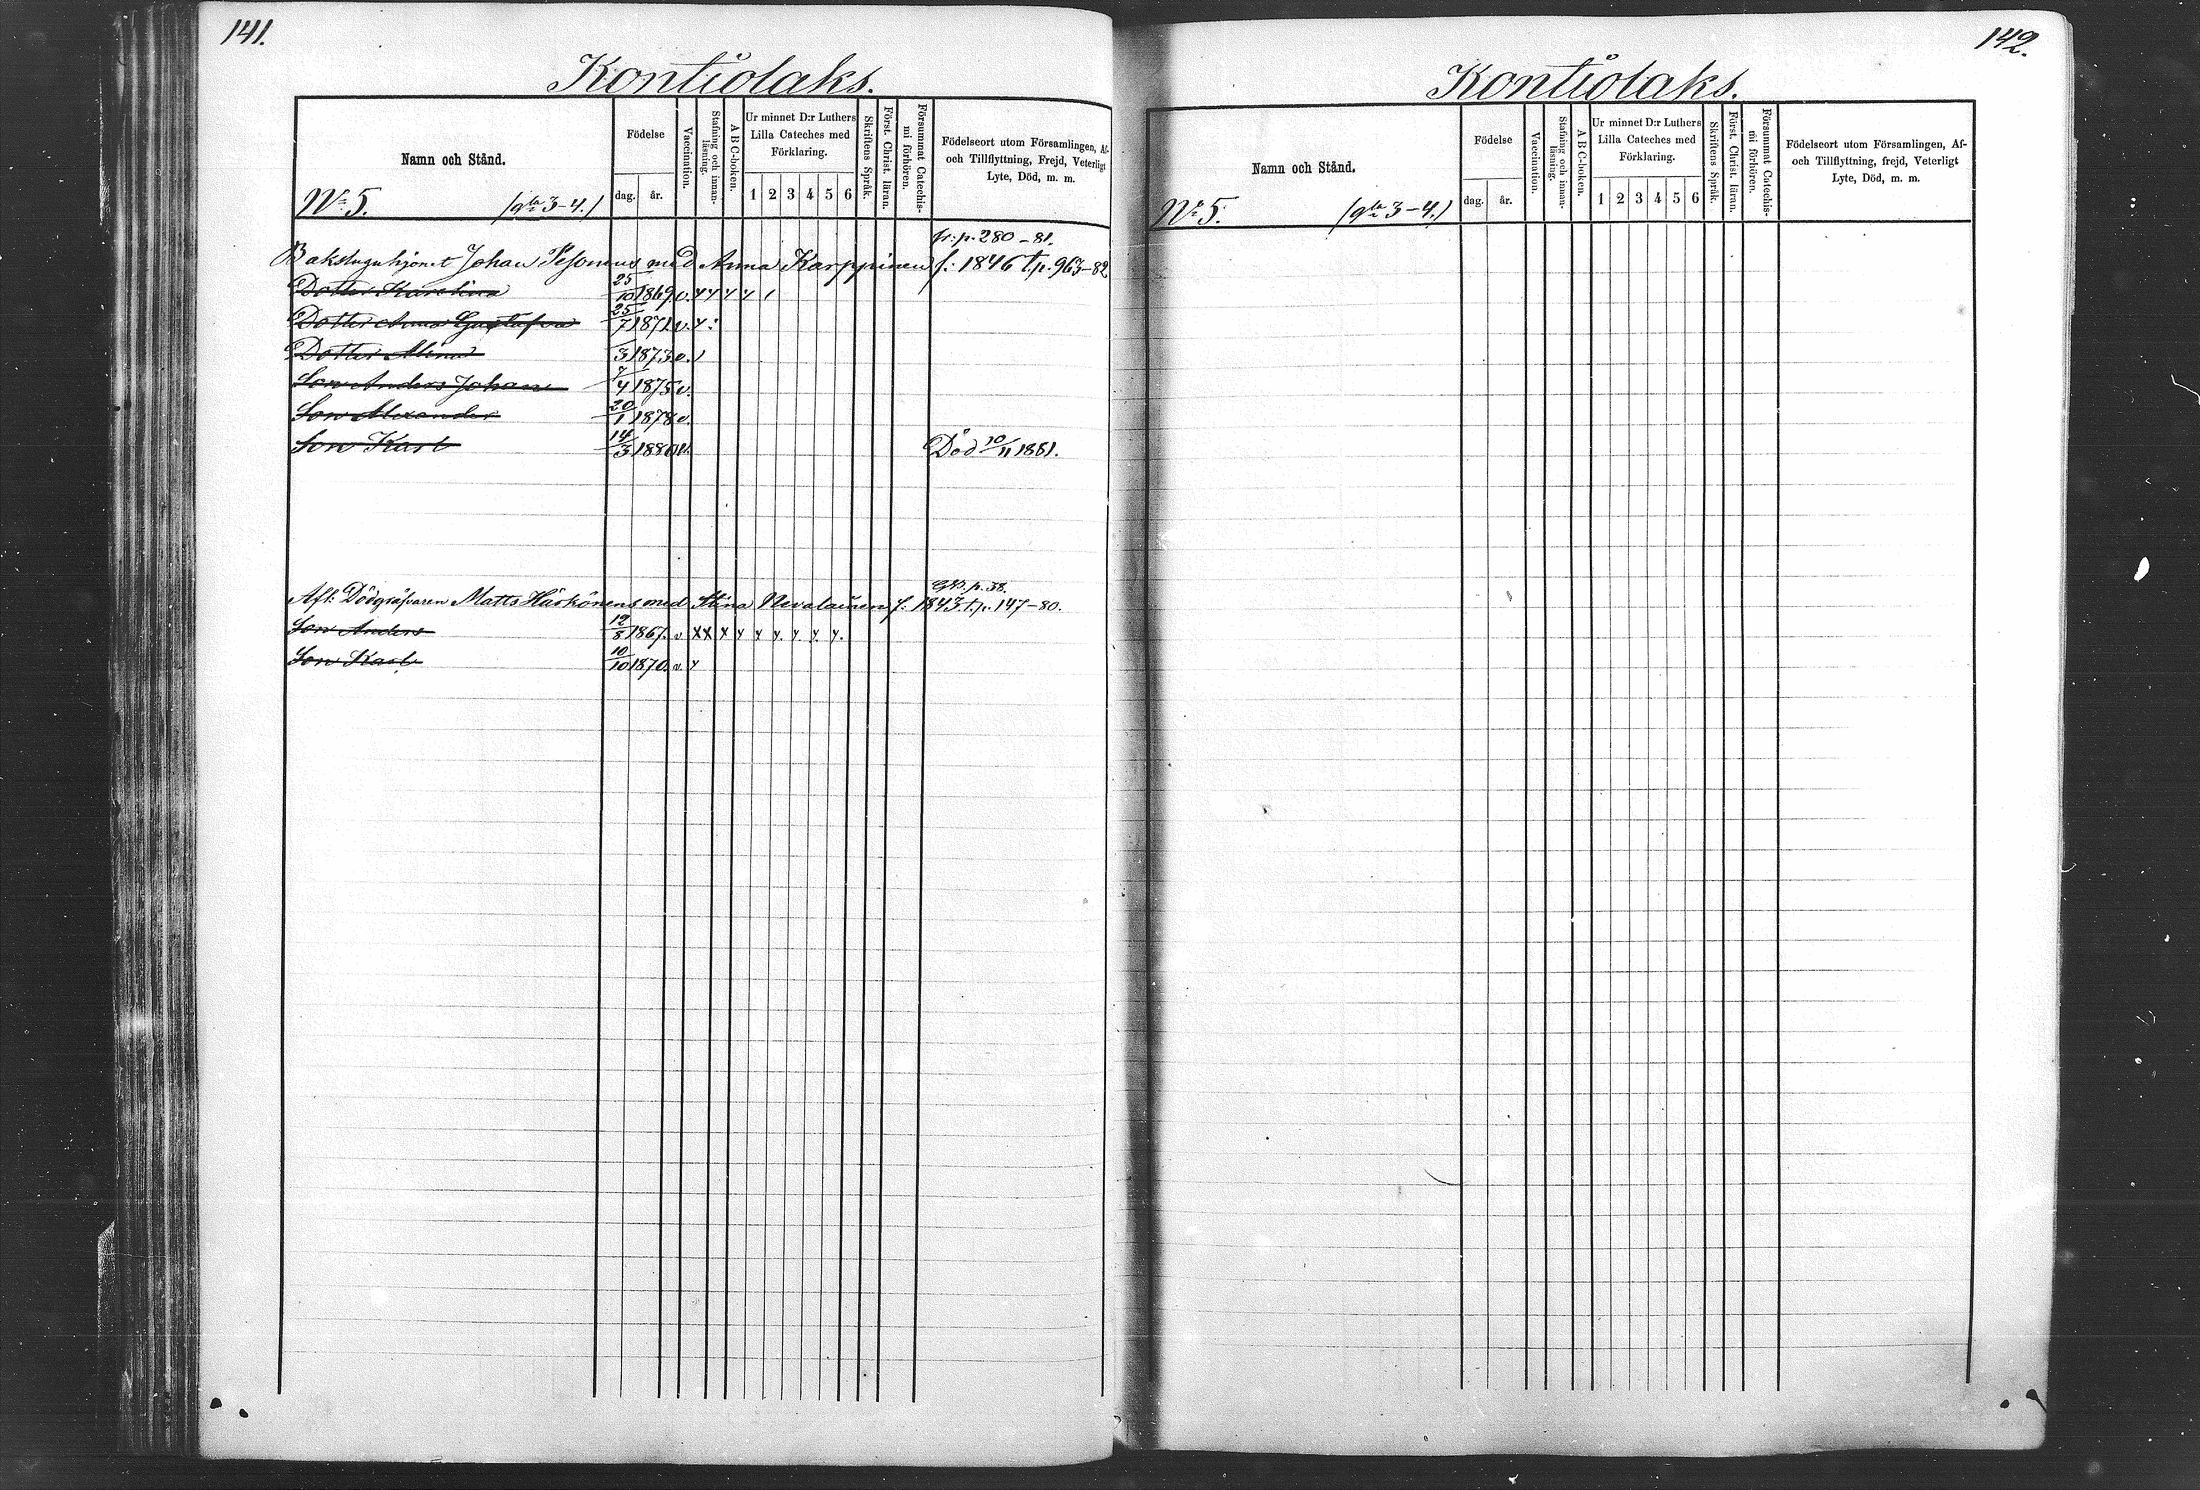 141.
Kontiolaks.
Namn och Stånd.
Födelse
dag.
år.
Vaccination.
Stafning och innan-
läsning.
A B C-boken.
Ur minnet D:r Luthers
Lilla Cateches med
Förklaring.
1 2 3 4 5 6
Skriftens Språk.
Först. Christ. läran.
Försummat Catechis-
mi förhören.
Födelseort utom Församlingen, Af-
och Tillflyttning, Frejd, Veterligt
Lyte, Död, m. m.
No 5. (gla 3-4.)
fr: p. 280-81.
Bakstuguhjonet Johan Pesonens med Anna Karppinen f: 1846 t.p. 963-82
Dotter Karolina 25/10 1869. v. y y y y /
Dotter Anna Gustafva 25/7 1871. v. y :
Dotter Alma /3 1873 v. /
Son Anders Johan 7/4 1875 v.
Son Alexander 20/1 1878 v.
Son Karl 14/3 1880 v. Död 10/11 1881.
p. 38.
Afl. Dödgräfvaren Matts Härkönens med Stina Nevalainen f. 1843 t.p. 147-80.
Son Anders 12/8 1867. v x x x y y y. y. y. y.
Son Karl 10/10 1870. v. y
142.
Kontiolaks.
Namn och Stånd.
Födelse
dag.
år.
Vaccination.
Stafning och innan-
läsning.
A B C-boken.
Ur minnet D:r Luthers
Lilla Cateches med
Förklaring.
1 2 3 4 5 6
Skriftens Språk.
Först. Christ. läran.
Försummat Catechis-
mi förhören.
Födelseort utom Församlingen, Af-
och Tillflyttning, frejd, Veterligt
Lyte, Död, m. m.
No 5. (gla 3-4.)